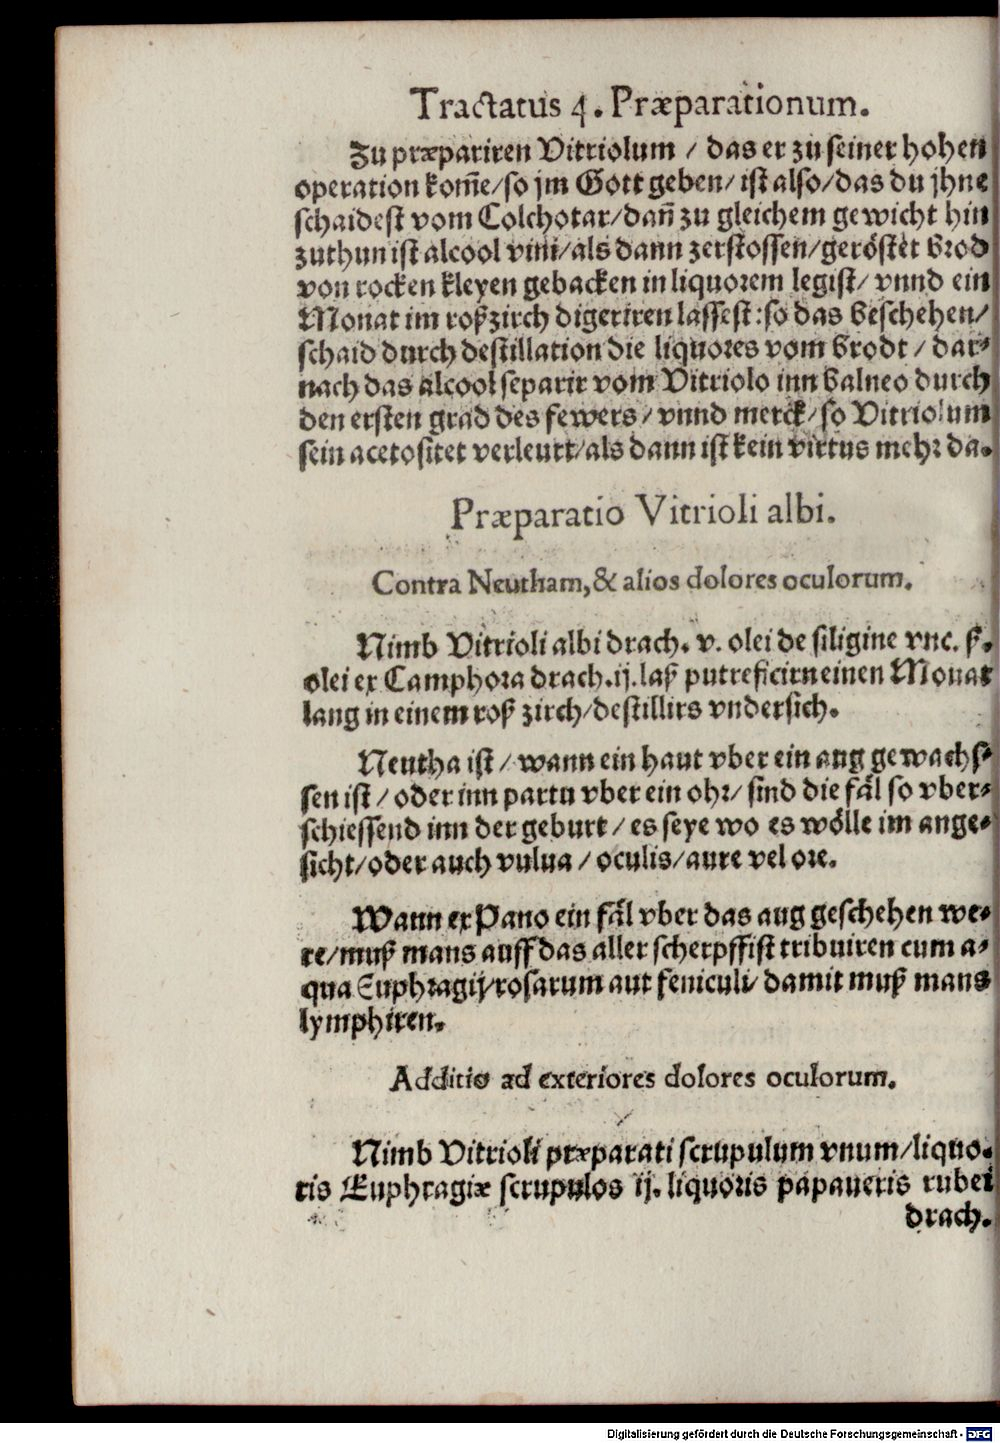 Tractatus 4. Præparationum.
Zu præpariren Vitriolum / das er zu seiner hohen
operation kom̃e/so jm Gott geben/ ist also/das du jhne
schaidest vom Colchotar/dañ zu gleichem gewicht hin
zuthun ist alcool vini/als dann zerstossen/geröstet brod
von rocken kleyen gebacken in liquorem legist/ vnnd ein
Monat im roßzirch digeriren lassest:so das beschehen/
schaid durch destillation die liquores vom brodt / dar⸗
nach das alcool separir vom Vitriolo inn balneo durch
den ersten grad des fewers/ vnnd merck/so Vitriolum
sein acetositet verleurt/als dann ist kein virtus mehr da.
Præparatio Vitrioli albi.
Contra Neutham,& alios dolores oculorum.
Nimb Vitrioli albi drach. v. olei de siligine vnc. ß.
olei ex Camphora drach.ij.laß putreficirn einen Monat
lang in einem roß zirch/destillirs vndersich.
Neutha ist / wann ein haut vber ein aug gewachs⸗
sen ist / oder inn partu vber ein ohr/ sind die fäl so vber⸗
schiessend inn der geburt / es seye wo es wölle im ange⸗
sicht/oder auch vulua / oculis/aure vel ore.
Wann ex Pano ein fäl vber das aug geschehen we⸗
re/muß mans auff das aller scherpffist tribuiren cum a⸗
qua Euphragij/rosarum aut feniculi/ damit muß mans
lymphiren.
Additio ad exteriores dolores oculorum.
Nimb Vitrioli præparati scrupulum vnum/liquo⸗
ris Euphragiæ scrupulos ij. liquoris papaueris rubei
drach.
Digitalisierung gefördert durch die Deutsche Forschungsgemeinschaft - DFG